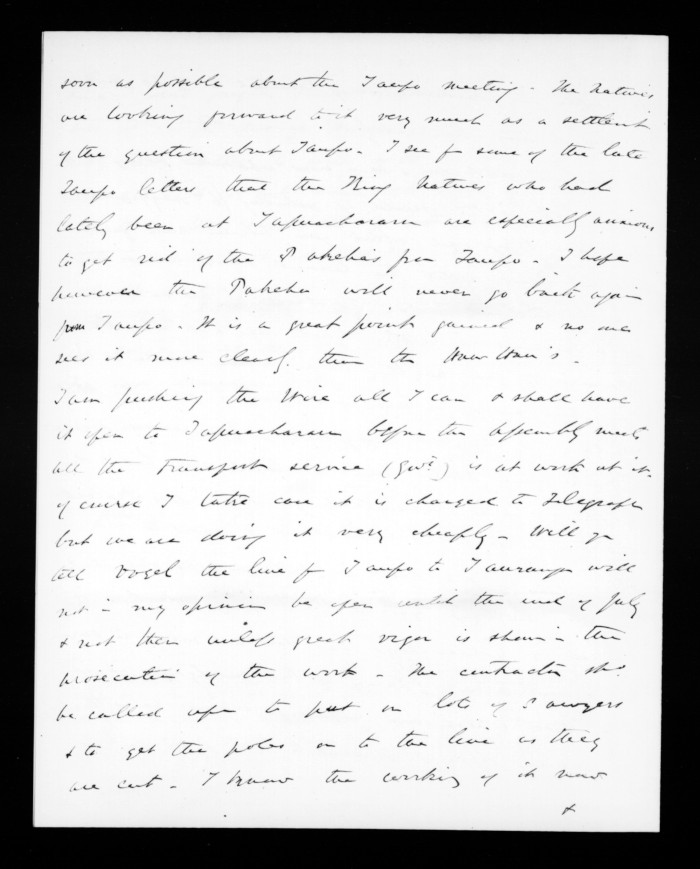 soon as possible about the Taupo meeting - The Natives
are looking forward to it very much as a settlent
of the question about Taupo - I see fm some of the late
Taupo letters that the King Natives who had
lately been at Tapuaeharuru are especially anxious
to get rid of the Pakehas from Taupo - I hope
however the Pakeha will never go back again
from Taupo - It is a great point gained & no one
sees it more clearly than the Hau Hau's -
I am pushing the Wire all I can & shall have
it open to Tapuaeharuru before the Assembly meets
all the Transport service (Govt) is at work at it.
of course I take care it is charged to Telegraph
but we are doing it very cheaply - Will you
tell Vogel the line fm Taupo to Tauranga will
not in my opinion be open until the end of July
& not then unless great vigor is shewn in the
prosecution of the work - The contractor shd
be called upon to put on lots of Sawyers
& to get the poles on to the line as they
are cut - I know the working of it now
&